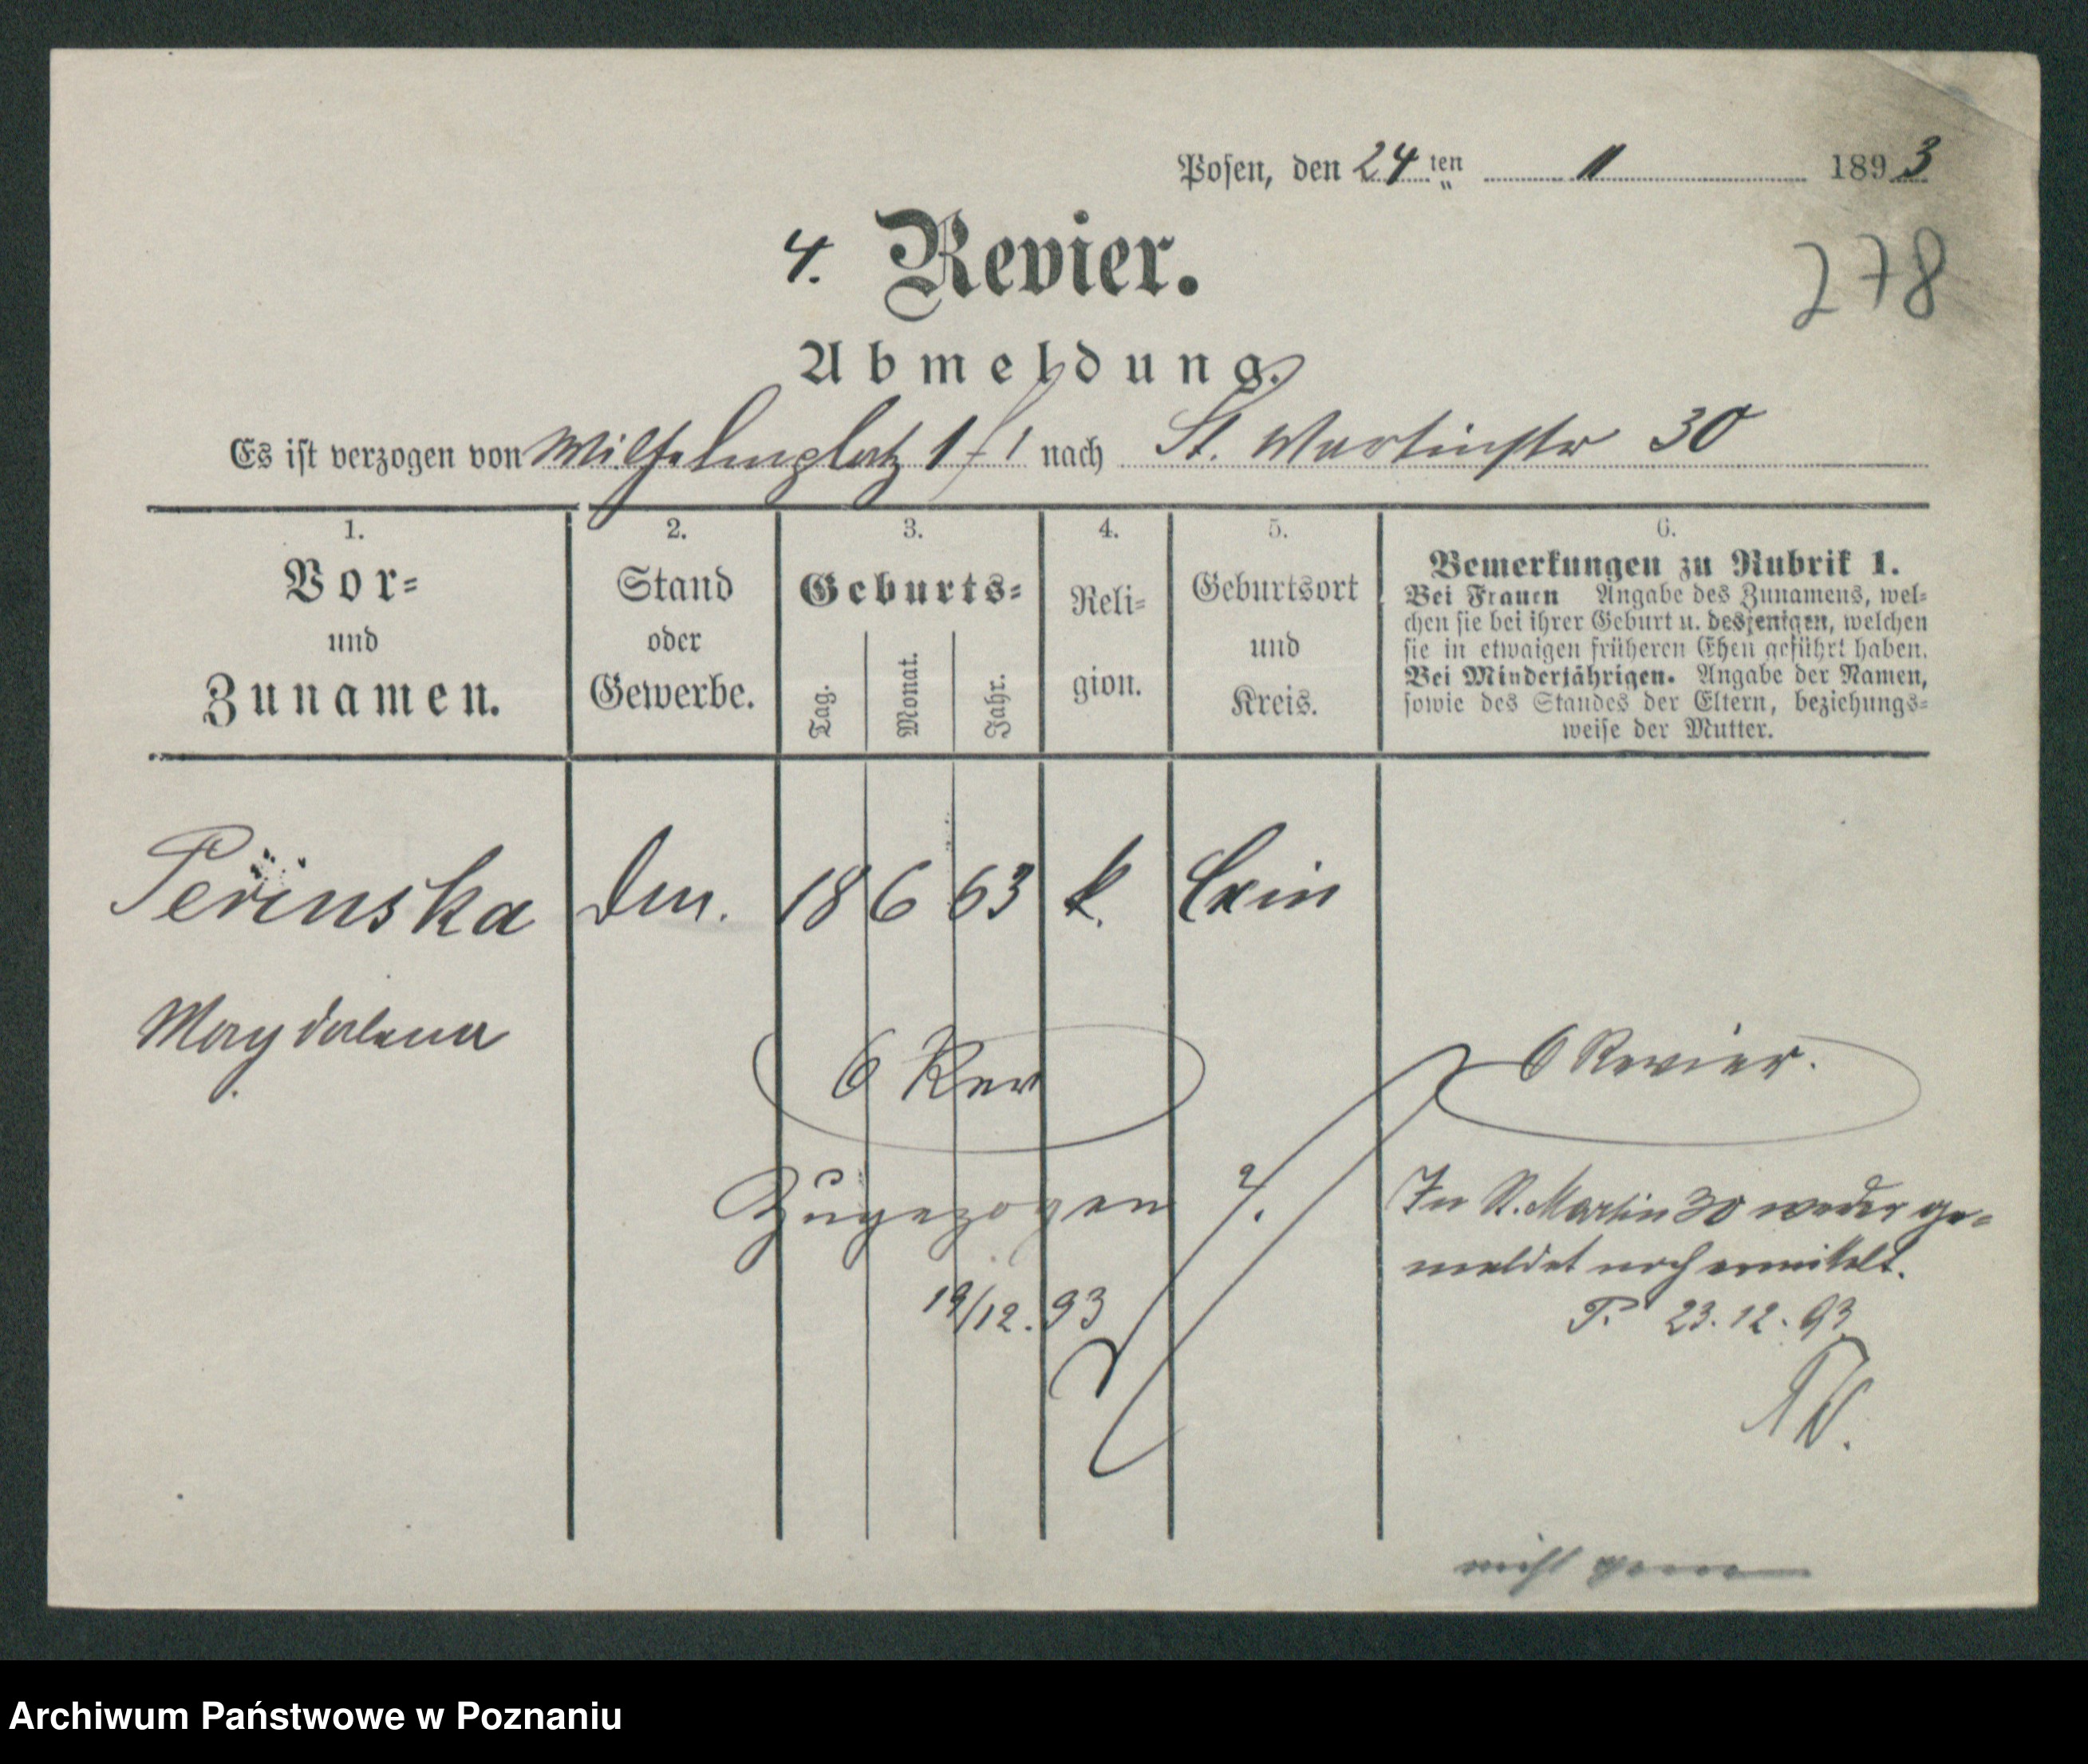 Posen, den 24ten 11 1893
278
4. Revier.
Abmeldung.
Es ist verzogen von Wilhelmplatz 1 nach St. Martinstr 30
1.
Vor-
und
Zunamen.
2.
Stand
oder
Gewerbe.
3.
Geburts-
Tag.
Monat.
Jahr.
4.
Reli-
gion.
5.
Geburtsort
und
Kreis.
6.
Bemerkungen zu Rubrik 1.
Bei Frauen Angabe des Zunamens, wel-
chen sie bei ihrer Geburt u. desjenigen, welchen
sie in etwaigen früheren Ehen geführt haben.
Bei Minderjährigen. Angabe der Namen,
sowie des Standes der Eltern, beziehungs-
weise der Mutter.
Perinska 18 6 63 k. Exin
Magdalena
6 Rev
6 Revier.
Zugezogen ?
19/12.93
In St. Martin 30 weder ge-
meldet noch ermittelt.
P. 23.12.93
nicht
Archiwum Państwowe w Poznaniu